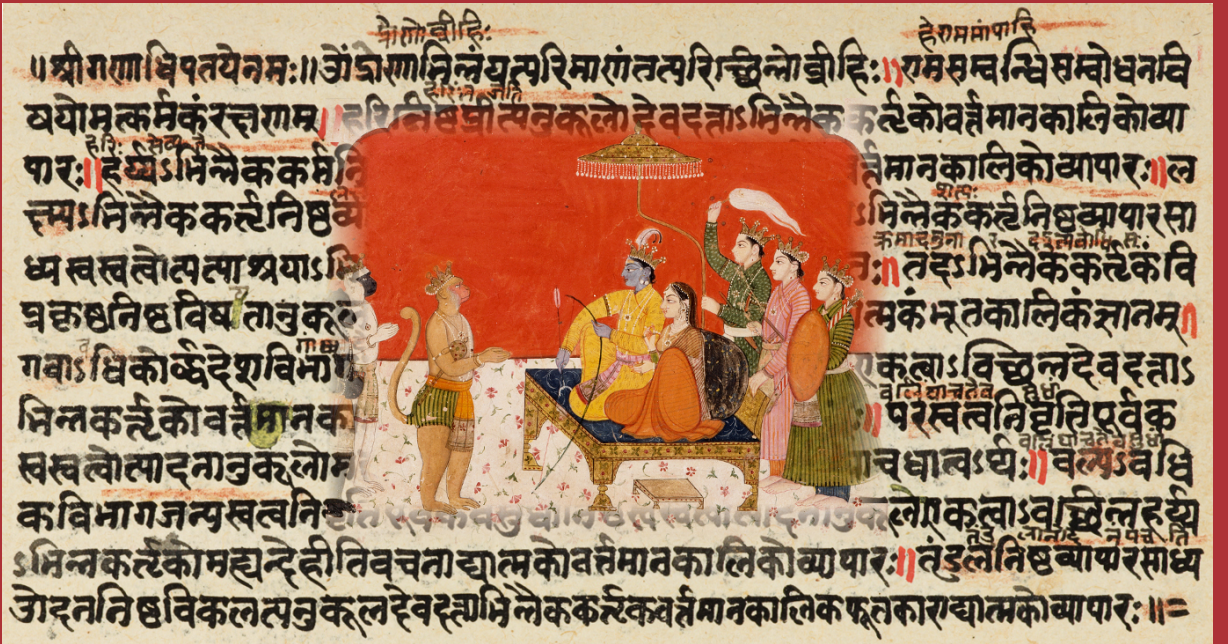 द्रोणोव्रीहिः हेराममांपाहि
॥श्रीगणाधिपतयेनमः॥ओंद्रोणाभिन्नंयत्परिमाणंतत्परिच्छिन्नोव्रीहिः॥रामसम्बन्धिसम्बोधनवि
षयोमत्कर्मकंरक्षणम्॥हरिनिष्ठप्रीत्यनुकूलोदेवदत्ताऽभिन्नैककर्तृकोवर्त्तमानकालिकोव्या
हरिः सेव्यते
पारः॥हर्य्यऽभिन्नैककर्मनि र्त्तमानकालिकोव्यापारः॥ल
क्ष्म्यऽभिन्नैककर्तृनिष्ठव्य ऽभिन्नैककर्तृनिष्ठव्यापारसा
ध्यस्वस्वत्वोत्पत्त्याश्रयाऽभि तः॥तदऽभिन्नैककर्तृकंवि
प्रकृष्ठनिष्ठविषयतानुकूल त्मकंभूतकालिकंज्ञानम्॥
गवाऽधिकोर्द्धदेशविभाग एकत्वाऽवच्छिन्नदेवदत्ताऽ
भिन्नकर्तृकोवर्त्तमानका ॥परस्वत्वनिवृत्तिपूर्वक
स्वस्वत्वोत्पादनानुकूलो याचधात्वऽर्थः॥वल्यऽवधि
कविभागजन्यस्वत्वनि लोएकत्वाऽवच्छिन्नहर्य्य
ऽभिन्नकर्तृकोमह्यन्देहीतिवचनाद्यात्मकोवर्त्तमानकालिकोव्यापारः॥तंडुलनिष्ठव्यापारसाध्य
ओदननिष्ठविकलत्यनुकूलदेवदत्ताभिन्नैककर्तृकवर्त्तमानकालिकफूतकाराद्यात्मकोव्यापारः॥=